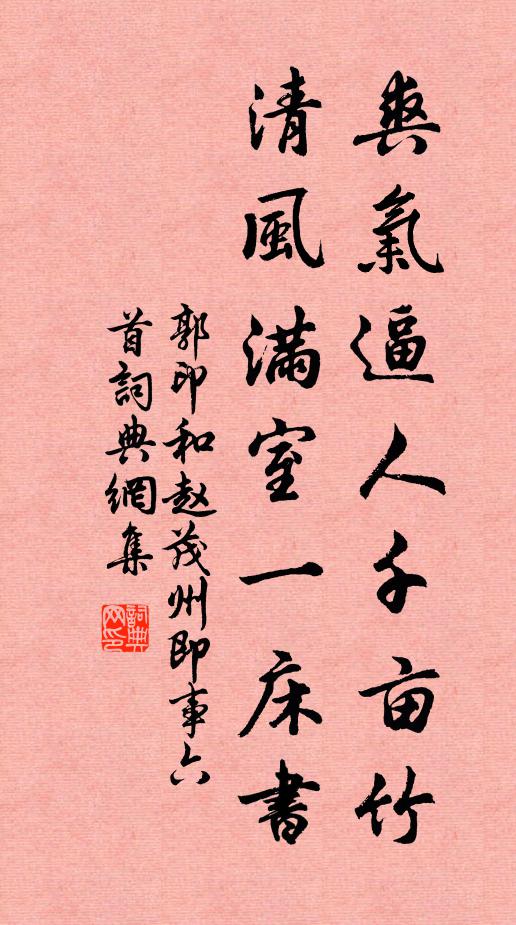 爽氣逼人千亩竹
清風滿室一床書
郭印和赵茂州即事六
首詞典網集
詞典网印